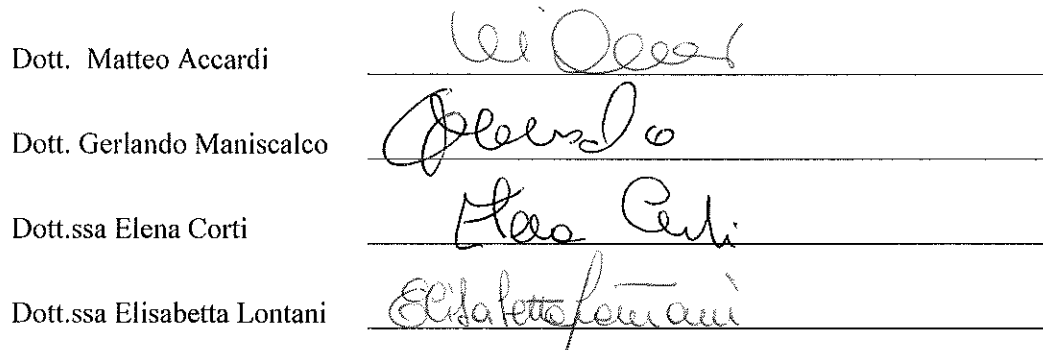 Dott. Matteo Accardi
Dott. Gerlando Maniscalco
Dott.ssa Elena Corti Elena Corti
Dott.ssa Elisabetta Lontani Elisabetta Lontani